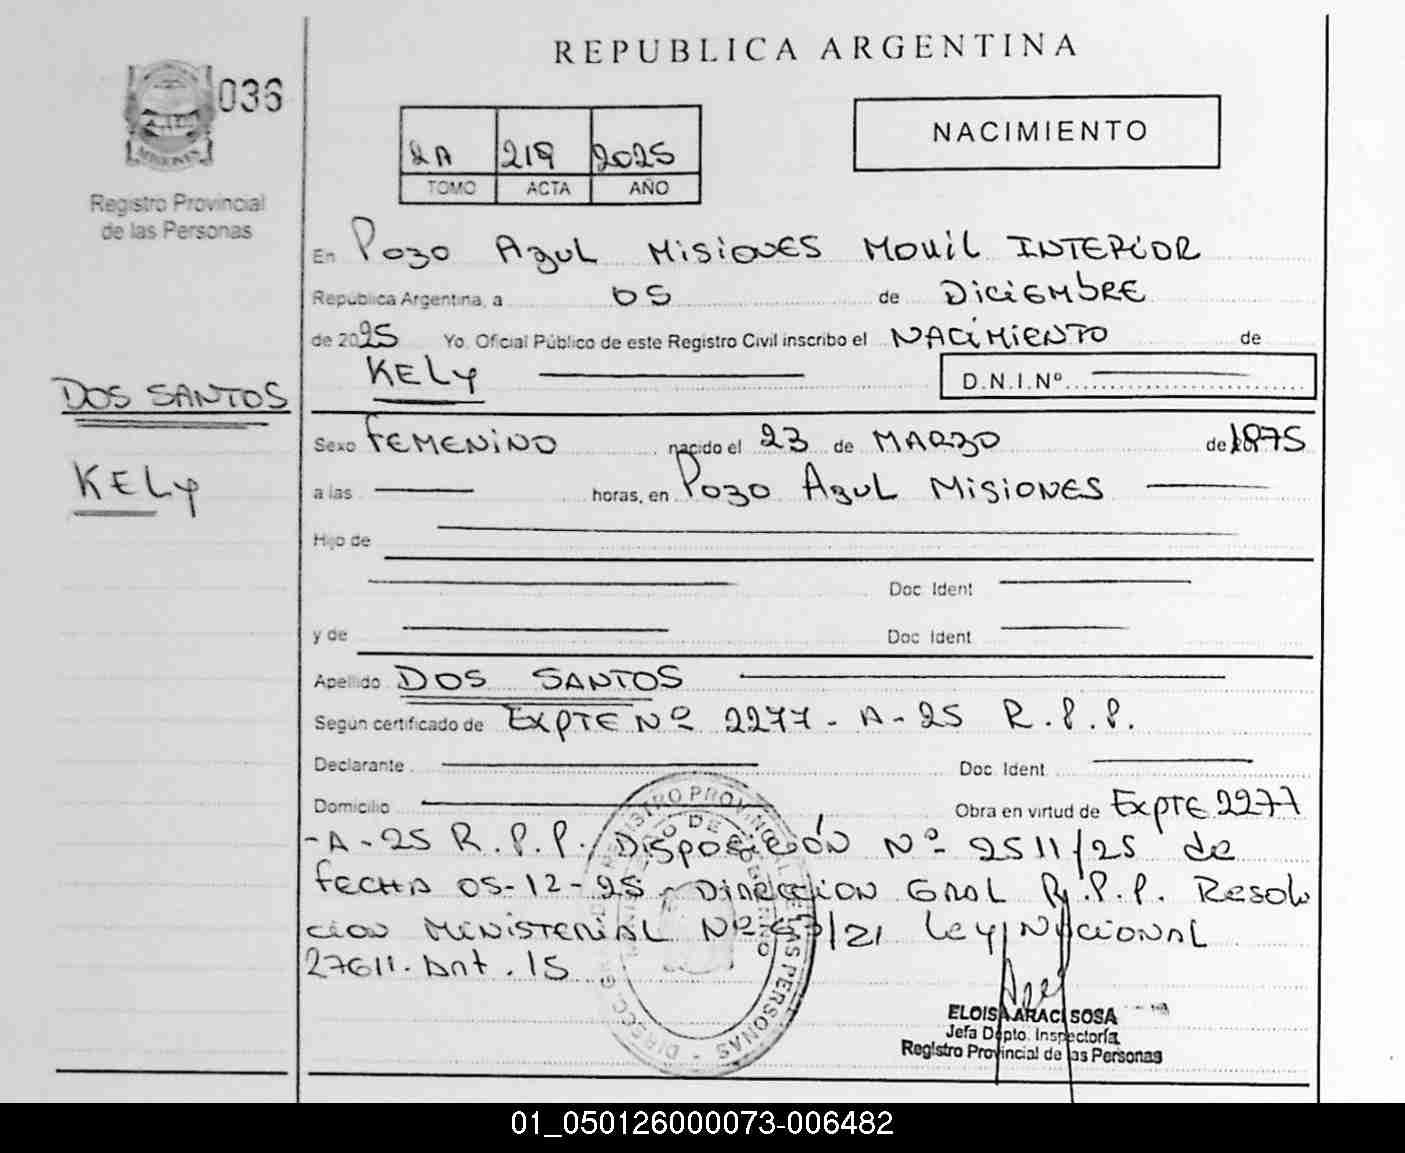 REPUBLICA ARGENTINA
036
NACIMIENTO
2A 219 2025
TOMO ACTA AÑO
MISIONES
Registro Provincial
de las Personas
En Pozo Azul Misiones Movil INTERIOR
República Argentina, a 05 de Diciembre
de 2025 Yo. Oficial Público de este Registro Civil inscribo el NACiMiENTO de
KELy D.N.I.Nº
DOS SANTOS
KELy
Sexo FEMENiNO nacido el 23 de MARZO de 1875
a las horas, en Pozo Azul Misiones
Hijo de
Doc. Ident
y de Doc. Ident
Apellido DOS SANTOS
Según certificado de EXPTE Nº 2277-A-25 R.P.P.
Declarante Doc. Ident
Domicilio Obra en virtud de EXPTE 2277
-A-25 R.P.P. Disposición Nº 2511/25 de
fECHA 05-12-25 - Dirección GRAL R.P.P. Resolu
cion Ministerial Nº /21 Ley Nacional
27611. Art. 15
REGISTRO PROVINCIAL DE LAS PERSONAS
ELOISA ARACI SOSA
Jefa Dpto. Inspectoría
Registro Provincial de las Personas
01_050126000073-006482